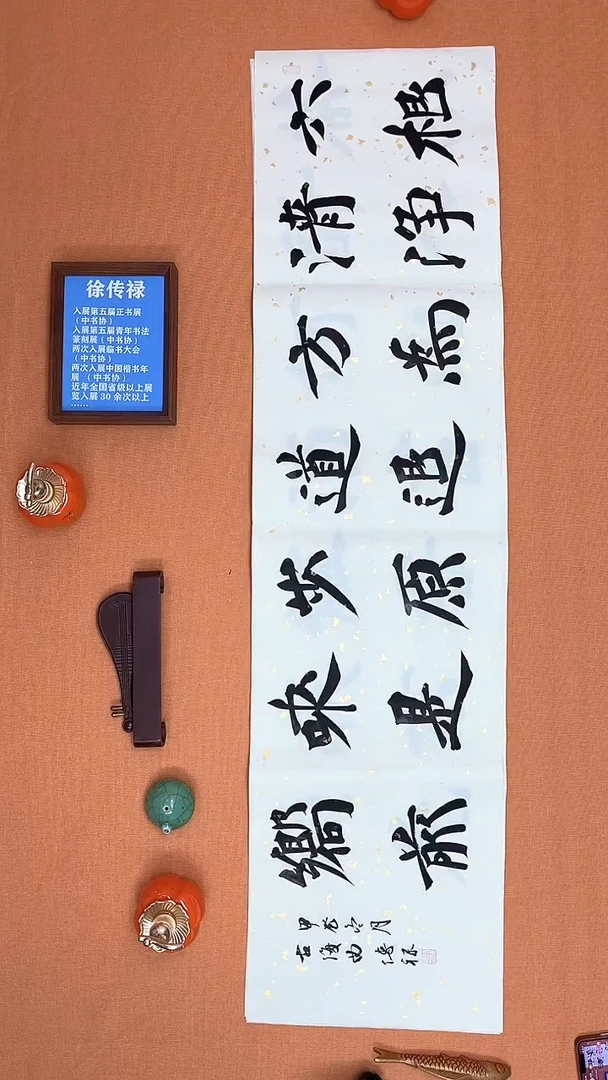 徐传禄
入展第五届正书展
（中书协）
入展第五届青年书法
篆刻展（中书协）
两次入展临书大会
（中书协）
两次入展中国楷书年
展（中书协）
近年全国省级以上展
览入展 30 余次以上
……
六根
清净
方為
道退
步原
来是
嚮前
甲辰冬月
古海曲 傳禄